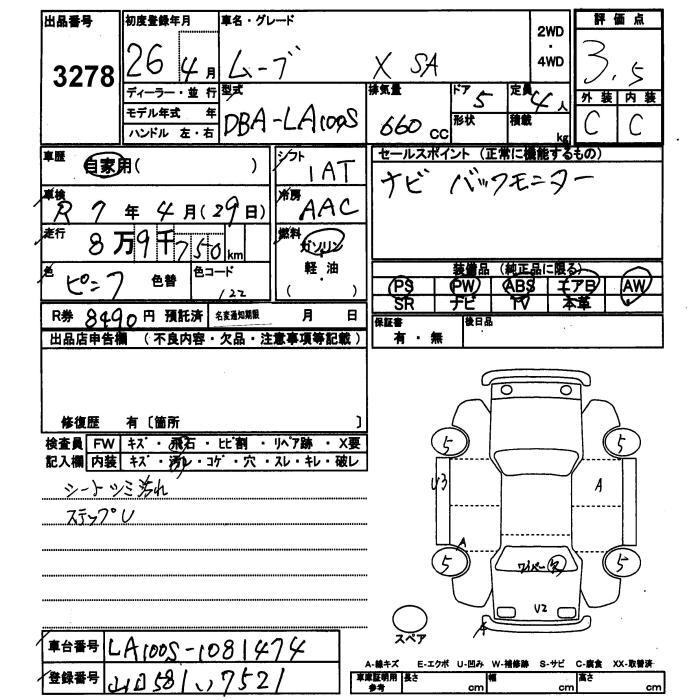 出品番号 初度登録年月 車名・グレード 2WD ・ 4WD 評価点
3278 26 4月 ムーブ X SA 3.5
ディーラー・並行 型式 排気量 ドア 5 定員 4人 外装 内装
モデル年式 年 DBA-LA100S 660 cc 形状 積載 kg C C
ハンドル 左・右
車歴 自家用( ) シフト IAT セールスポイント (正常に機能するもの)
車検 R7年4月(29日) 冷房 AAC ナビ バックモニター
走行 8万9千750km 燃料 ガソリン 軽・油 ( )
色 ピンク 色替 色コード 122 装備品 (純正品に限る)
PS PW ABS エアB AW
SR ナビ TV 本革
R券 8490円 預託済 名変通知期限 月 日 保証書 有・無 後日品
出品店申告欄 (不良内容・欠品・注意事項等記載)
修復歴 有〔箇所 〕
検査員 FW キズ・飛石・ヒビ割・リペア跡・X要
記入欄 内装 キズ・汚レ・コゲ・穴・スレ・キレ・破レ
シートツミ汚れ
ステップU
5 5
U3 A
A
5 ワイパー欠 5
U2
A
スペア
車台番号 LA100S-1081474
登録番号 581 い 7521
A-線キズ E-エクボ U-凹み W-補修跡 S-サビ C-腐食 XX-取替済
車庫証明用参考 長さ cm 幅 cm 高さ cm